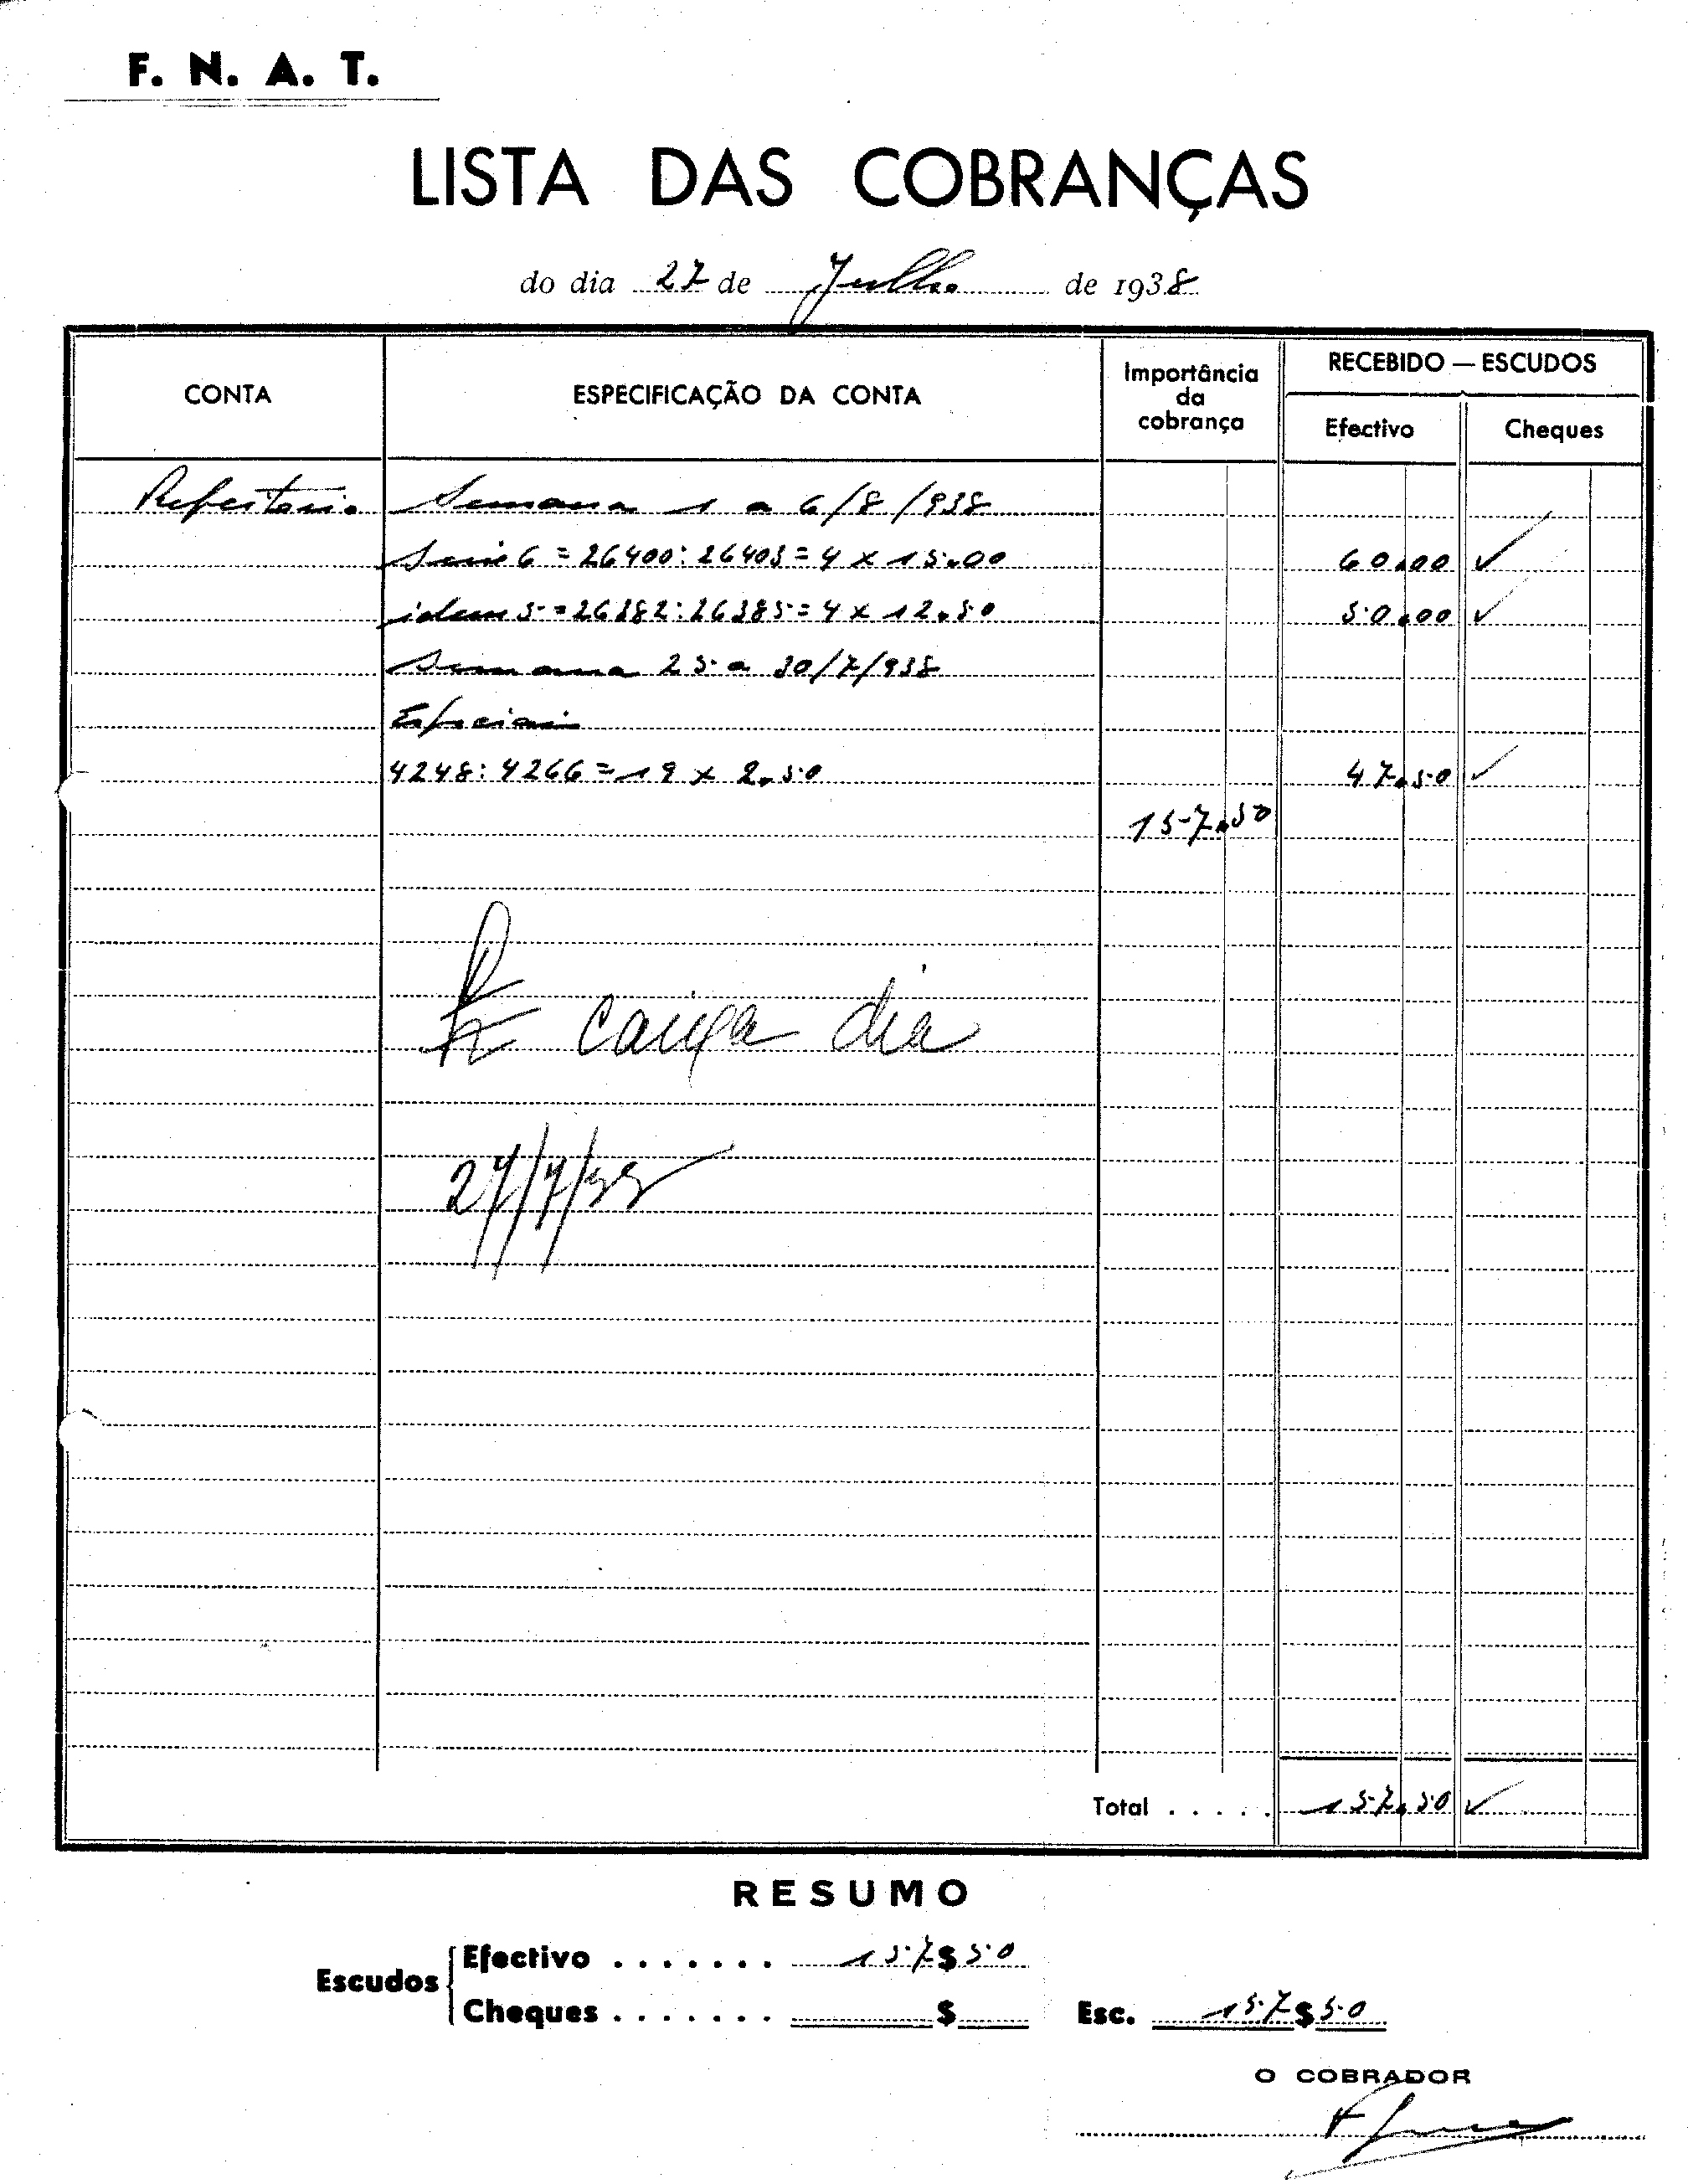 F. N. A. T.
LISTA DAS COBRANÇAS
do dia 27 de Julho de 1938
CONTA
ESPECIFICAÇÃO DA CONTA
Importância
da
cobrança
RECEBIDO — ESCUDOS
Efectivo
Cheques
Refeitorio Semana 1 a 6/8/938
Serie 6 = 26400:26403 = 4 x 15.00 60.00 ✓
idem 5 = 26382:26385 = 4 x 12.50 50.00 ✓
Semana 25 a 30/7/938
Especiais
4248:4266 = 19 x 2.50 47.50 ✓
157.50
caixa dia
27/7/38
Total . . . . . 157.50 ✓
RESUMO
Escudos
Efectivo . . . . . . . 157$50
Cheques . . . . . . . $
Esc. 157$50
O COBRADOR